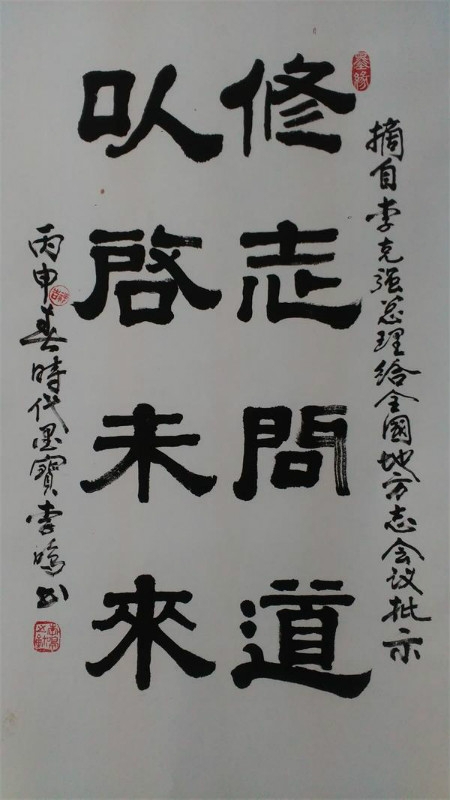 摘自李克强总理给全國地方志会议批示
修志問道
以啓未來
丙申春時代墨寶李鸣书